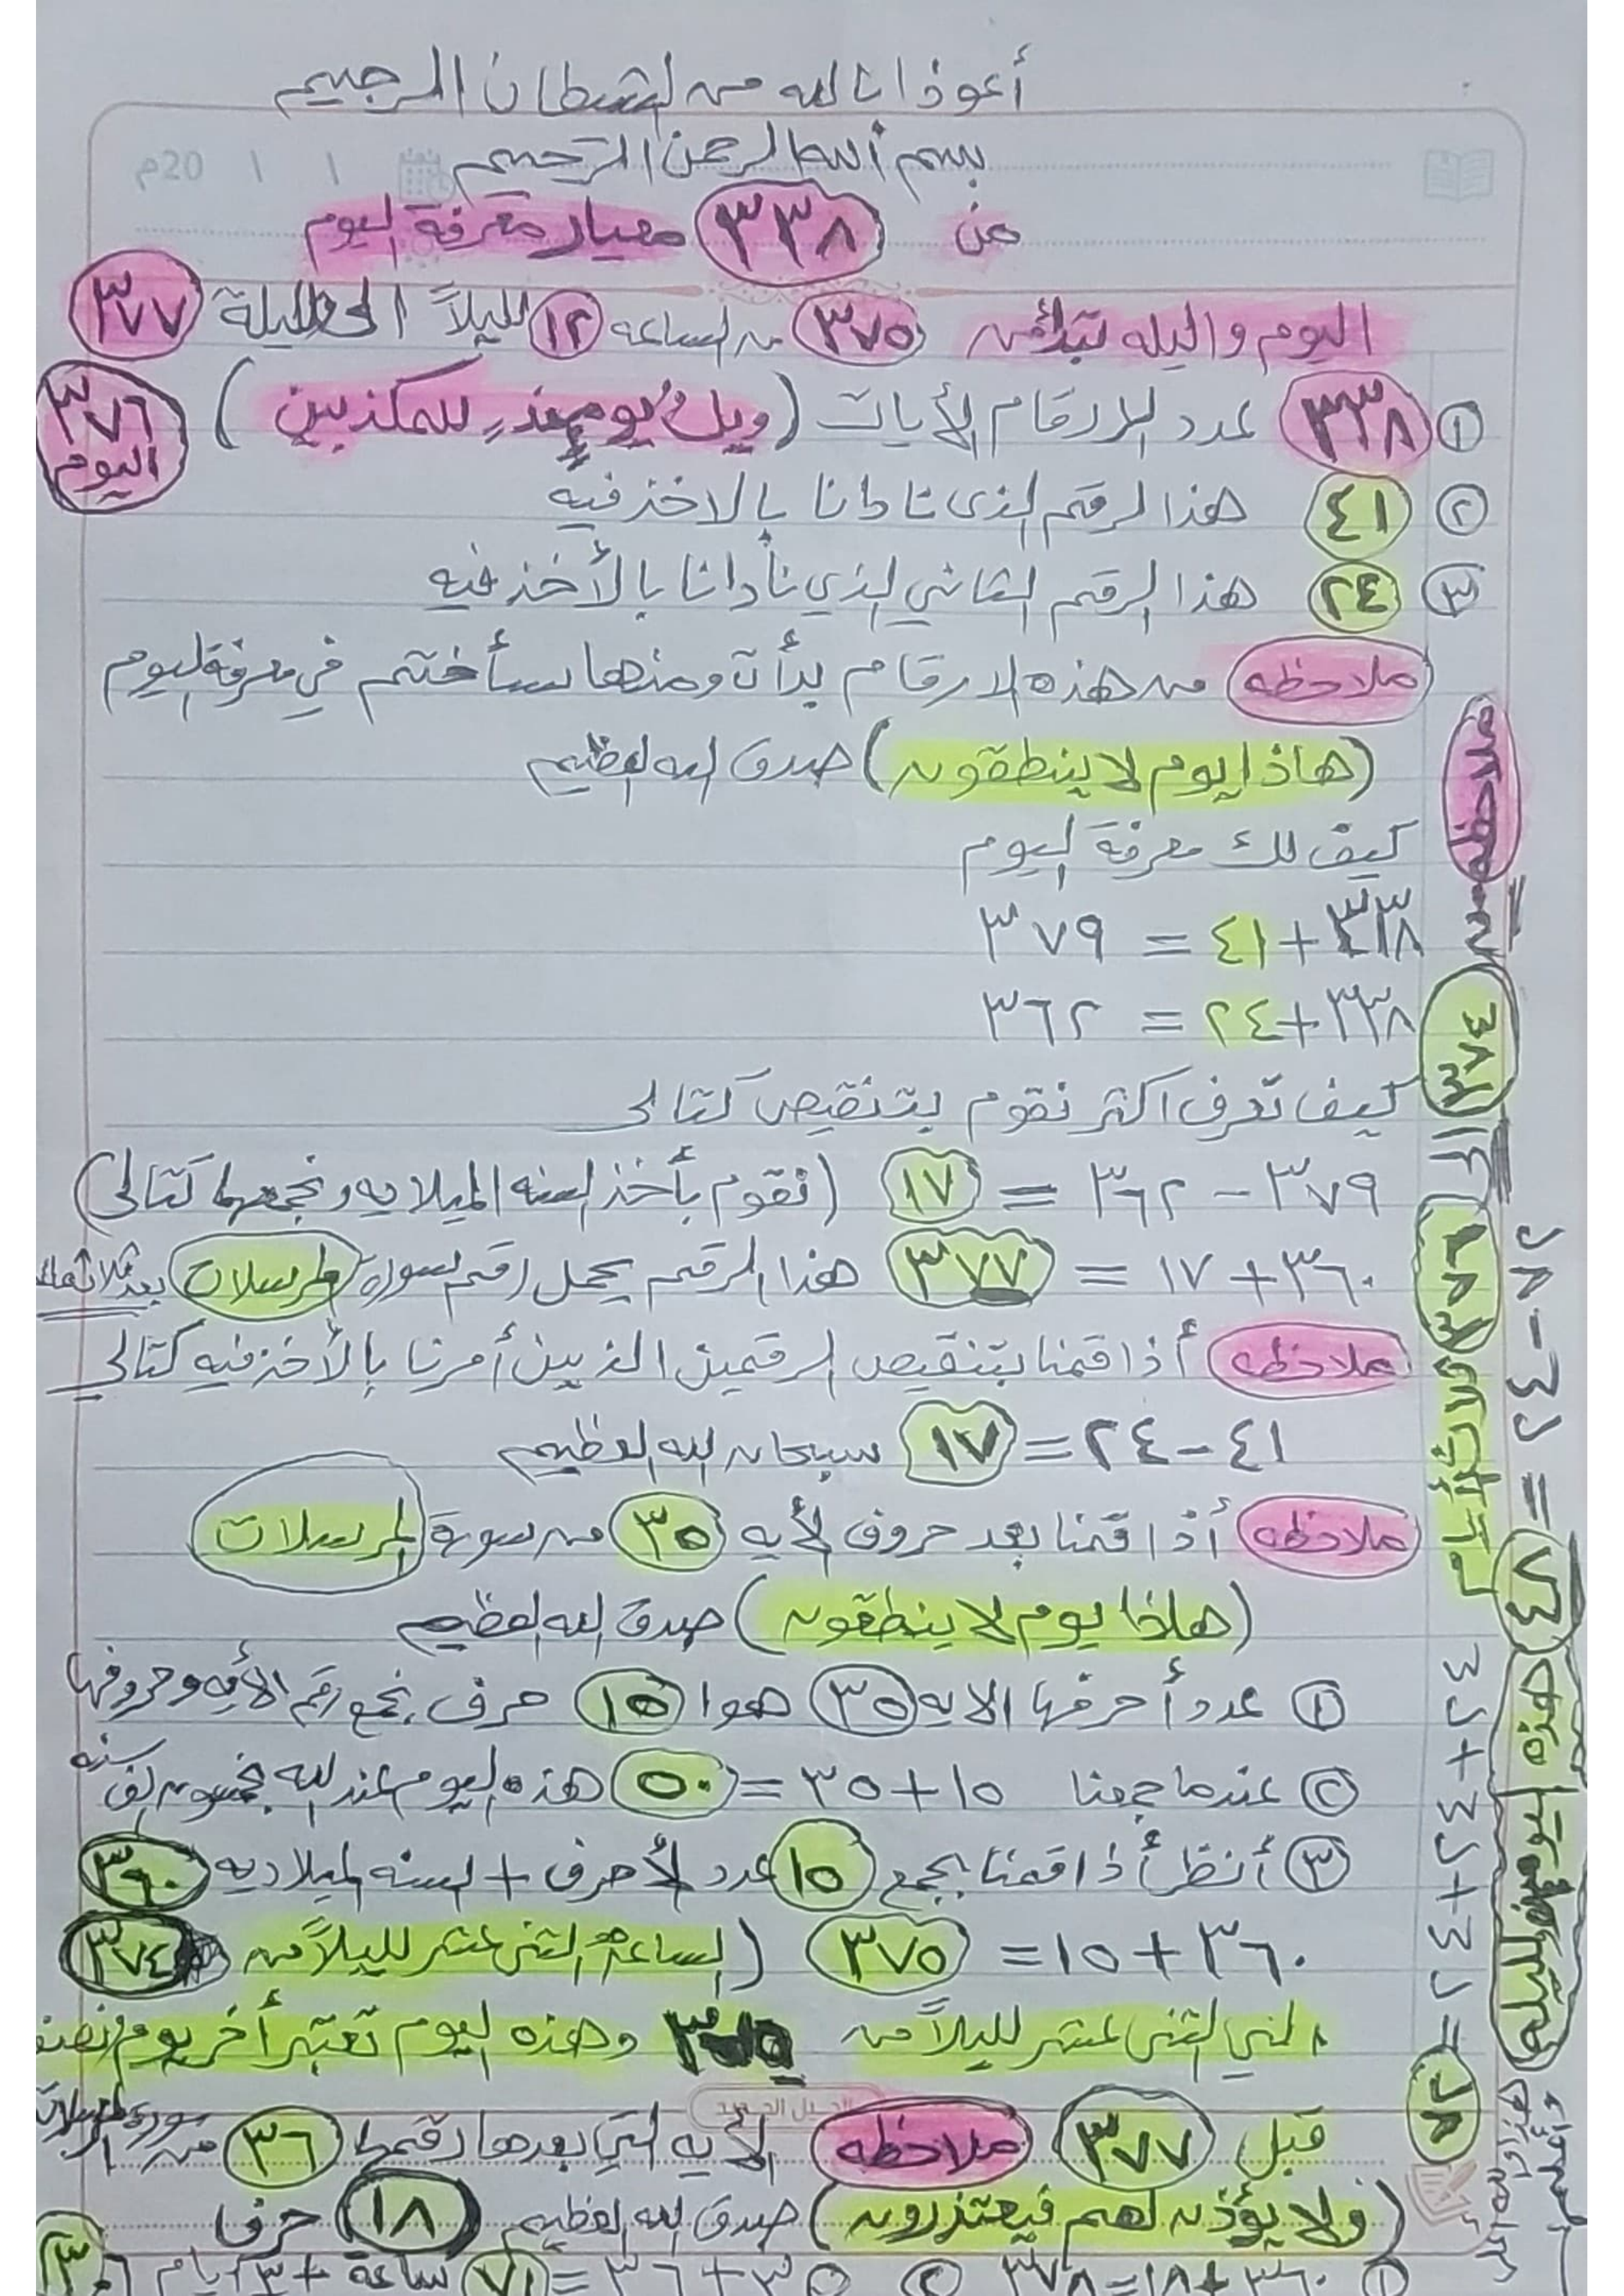 أعوذ بالله من الشيطان الرجيم
بسم الله الرحمن الرحيم
20م / /
عن ٣٣٨ معيار معرفة اليوم
اليوم واليله تبدأ من ٣٧٥ من الساعه ١٢ لليلاً الى ليلة ٣٧٧
① ٣٣٨ عدد الارقام الأيات (ويلٌ يومئِذٍ للمكذبين) ٣٧٦ اليوم
② ٤١ هذا الرقم الذى نادانا بالاخذ فيه
③ ٢٤ هذا الرقم الثاني الذي نادانا بالأخذ فيه
ملاحظه من هذه الارقام بدأت ومنها سأختتم في معرفة اليوم
(هاذا يوم لا ينطقون) صدق الله العظيم
كيف لك معرفة اليوم
٣٣٨+٤١ = ٣٧٩
٣٣٨+٢٤ = ٣٦٢
كيف تعرف اكثر نقوم بتنقيص كتالى
٣٧٩ - ٣٦٢ = ١٧ (نقوم بأخذ السنه الميلاديه ونجمعها كتالى)
٣٦٠+١٧ = ٣٧٧ هذا الرقم يحمل رقم سورة المرسلات بعد
ملاحظه أذا قمنا بتنقيص الرقمين الذيين أمرنا بالأخذ فيه كتالي
٤١-٢٤=١٧ سبحان الله العظيم
ملاحظه أذا قمنا بعد حروف الأيه ٣٥ من سورة المرسلات
(هاذا يوم لا ينطقون) صدق الله العظيم
① عدد أحرفها الايه ٣٥ هوا ١٥ حرف نجمع رقم الأيه وحروفها
② عندما جمعنا ١٥+٣٥=٥٠ هذه اليوم عند الله بخمسون الف سنه
③ أنظر أذا قمنا بجمع ١٥ عدد الأحرف + السنه الميلاديه ٣٦٠
٣٦٠+١٥= ٣٧٥ (الساعة الثنى عشر لليلاً من ٣٧٤
الي الثنى عشر لليلاً من ٣٧٥ وهذه اليوم تعتبر أخر يوم
قبل ٣٧٧ ملاحظه الأيه التي بعدها رقمها ٣٦ من سورة المرسلات
(ولا يؤذن لهم فيعتذرون) صدق الله العظيم ١٨ حرف
① ٣٦٠+١٨=٣٧٨ ② ٣٦+ =٧١ ساعة +٣ أيام
ملاحظه من ٣٨٤ الى ٣٨٦ ثلاث أيام
٢٤+٢٤+٢٤ =
هذه اليوم والليله